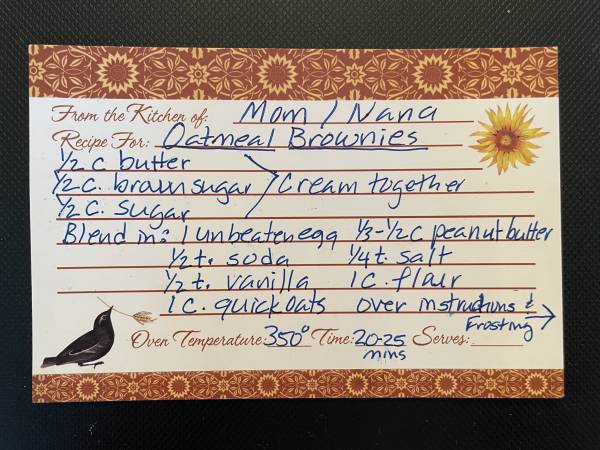 From the Kitchen of: Mom / Nana
Recipe For: Oatmeal Brownies
1/2 c butter
1/2 c. brown sugar > Cream together
1/2 c. sugar
Blend in: 1 unbeaten egg 1/3-1/2 c peanut butter
1/2 t. soda 1/4 t. salt
1/2 t. vanilla 1 c. flour
1 c. quick oats over instructions &
Frosting →
Oven Temperature: 350° Time: 20-25 mins Serves: